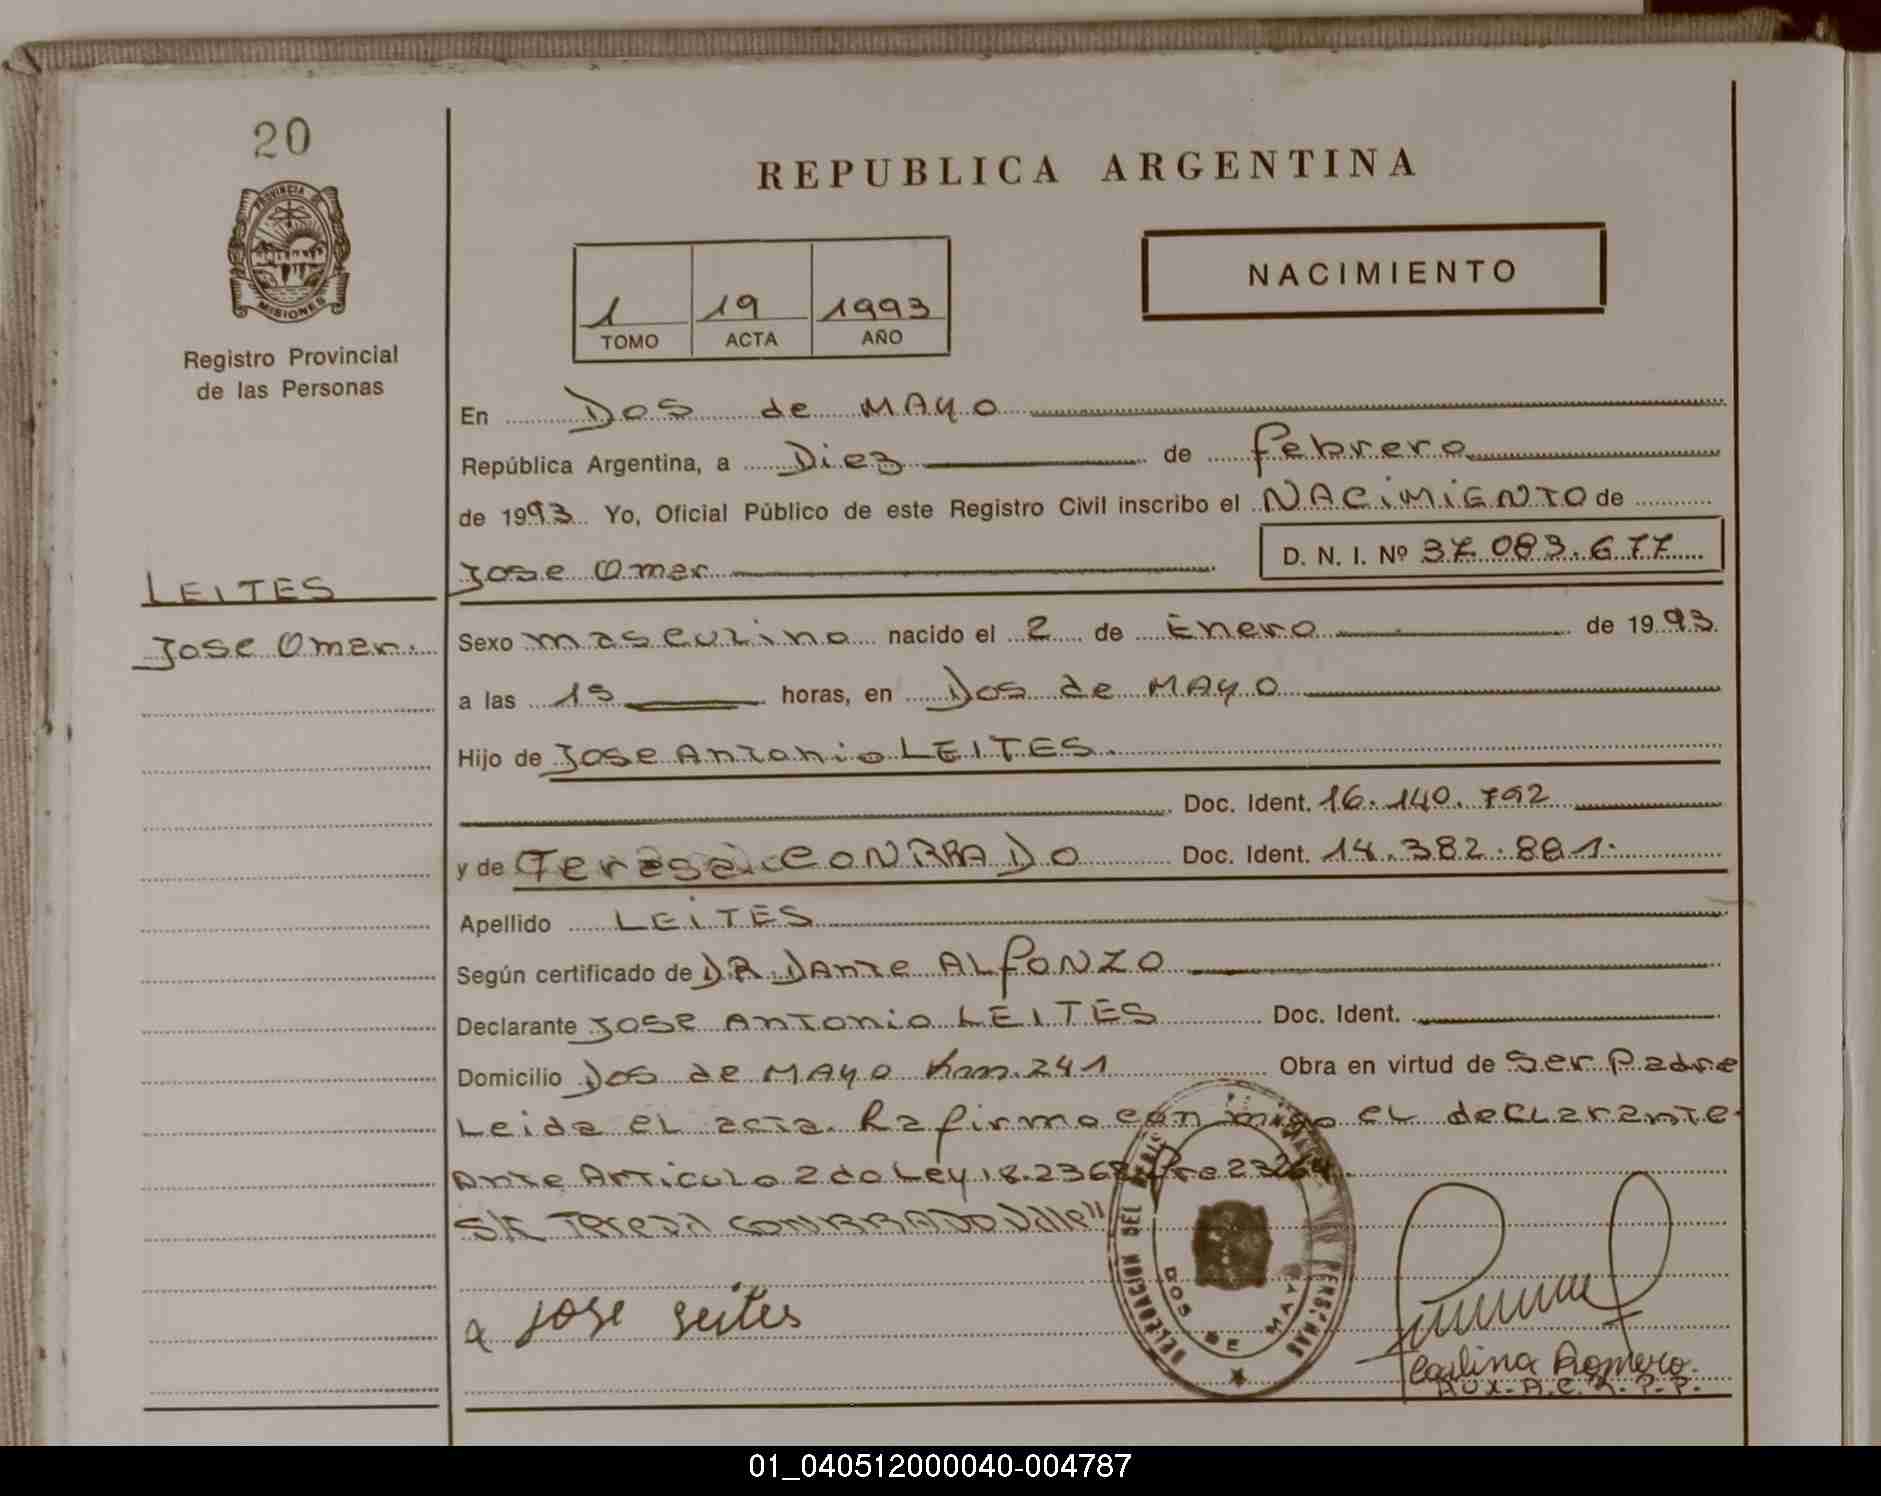 20
PROVINCIA DE
MISIONES
Registro Provincial
de las Personas
LEITES
Jose Omer.
REPUBLICA ARGENTINA
1 19 1993
TOMO ACTA AÑO
NACIMIENTO
En Dos de MAyo
República Argentina, a Diez de febrero
de 1993 Yo, Oficial Público de este Registro Civil inscribo el NACiMiENTO de
Jose Omer D. N. I. Nº 37.083.677
Sexo masculino nacido el 2 de Enero de 1993
a las 15 horas, en Dos de MAyo
Hijo de Jose Antonio LEITES.
Doc. Ident. 16.140.792
y de Teresa CONRRADO Doc. Ident. 14.382.881.
Apellido LEITES
Según certificado de DR DAnte ALfONZO
Declarante Jose Antonio LEITES Doc. Ident.
Domicilio Dos de MAyo Km. 241 Obra en virtud de Ser Padre
Leida el acta. Rafirmo con migo el declarante
Ante Articulo 2do Ley 18.2368 Pre 23264.
S/R Teresa CONRRADO Vale"
a jose Leites
DELEGACION DEL PERSONAS
DOS DE MAYO
Carlina Romero.
Aux. A.C.R.P.P.
01_040512000040-004787